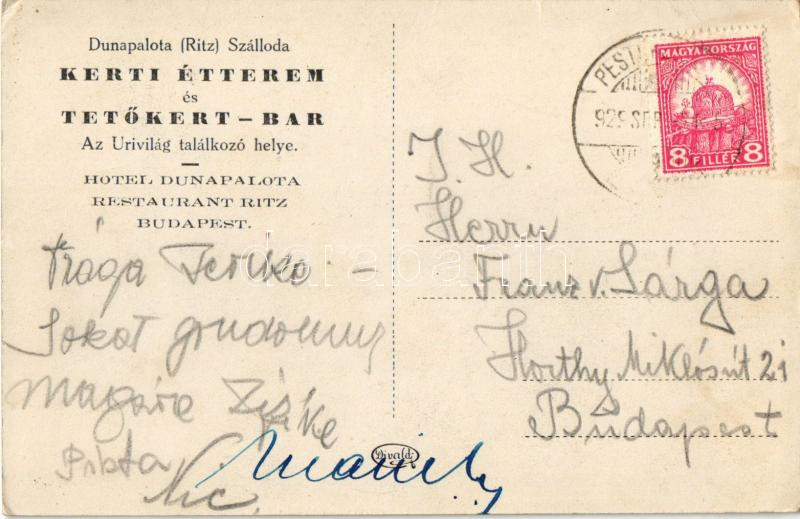 Dunapalota (Ritz) Szálloda
KERTI ÉTTEREM
és
TETŐKERT – BAR
Az Urivilág találkozó helye.
HOTEL DUNAPALOTA
RESTAURANT RITZ
BUDAPEST.
MAGYARORSZÁG
8 FILLÉR 8
PEST
929 SE
I. H.
Herrn
Franz v. Sárga
Horthy Miklós út 21
Budapest
Drága
Sokat gondolunk
Magára
Pista
Divald
darabanth